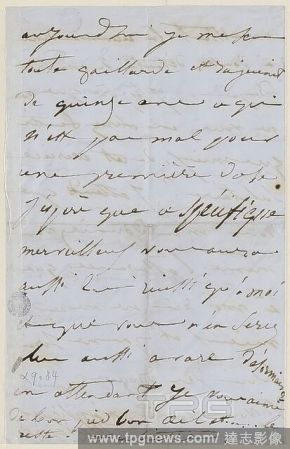 aujourd'hui je me sens
toute gaillarde et rajeunie
de quinze ans ce qui
n'est pas mal pour
une première dose
J'espère que ce spécifique
merveilleux vous aura
aussi bien réussi qu'à moi
et que vous n'en serez
plus aussi avare désormais
en attendant je vous aime
de bon pied bon
reste
29.84
TPG
www.tpgnews.com / 達志影像